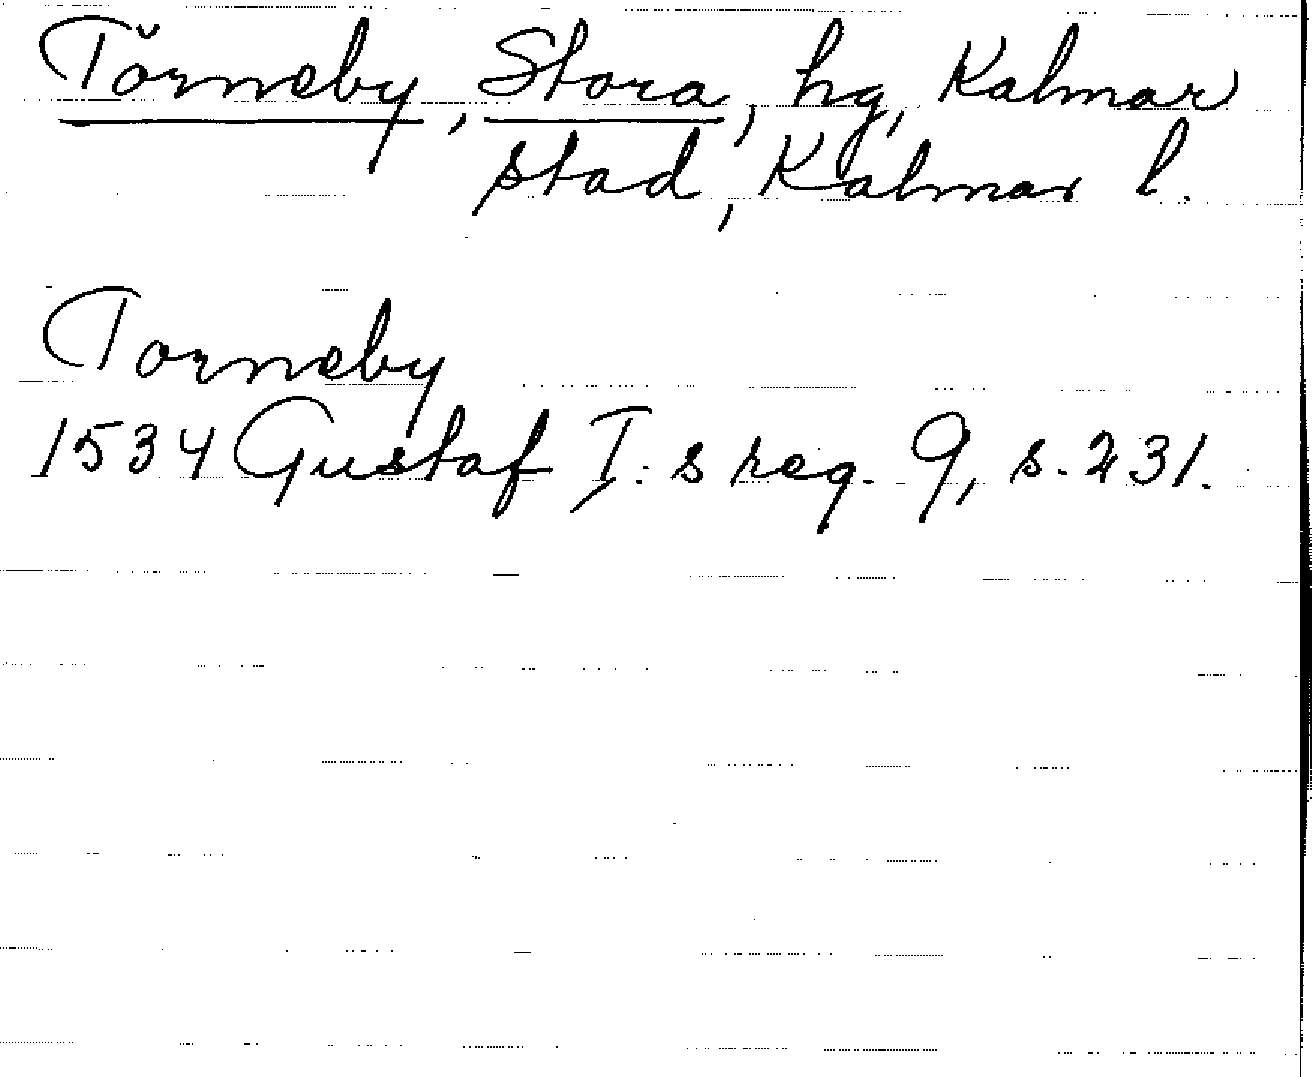 Törneby, Stora, hg, Kalmar
stad, Kalmar l.
Torneby
1534 Gustaf I:s reg. 9, s. 231.